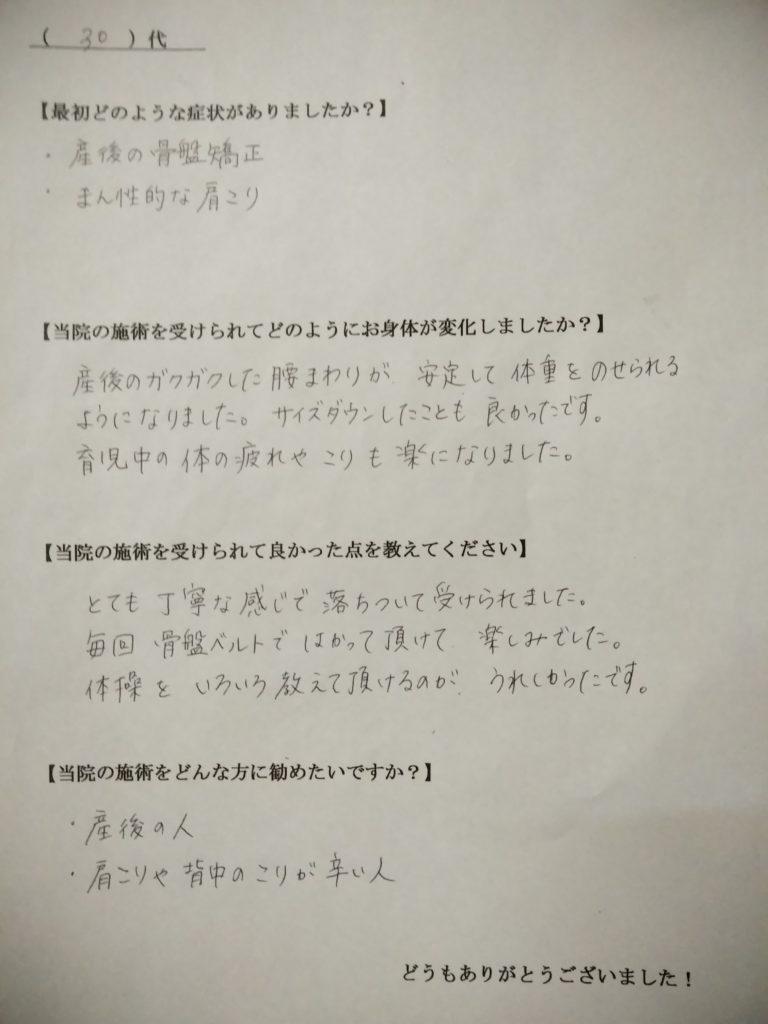 ( 30 ) 代
【最初どのような症状がありましたか？】
・産後の骨盤矯正
・まん性的な肩こり
【当院の施術を受けられてどのようにお身体が変化しましたか？】
産後のガクガクした腰まわりが、安定して体重をのせられる
ようになりました。サイズダウンしたことも良かったです。
育児中の体の疲れやこりも楽になりました。
【当院の施術を受けられて良かった点を教えてください】
とても丁寧な感じで落ちついて受けられました。
毎回骨盤ベルトではかって頂けて、楽しみでした。
体操をいろいろ教えて頂けるのが、うれしかったです。
【当院の施術をどんな方に勧めたいですか？】
・産後の人
・肩こりや背中のこりが辛い人
どうもありがとうございました！